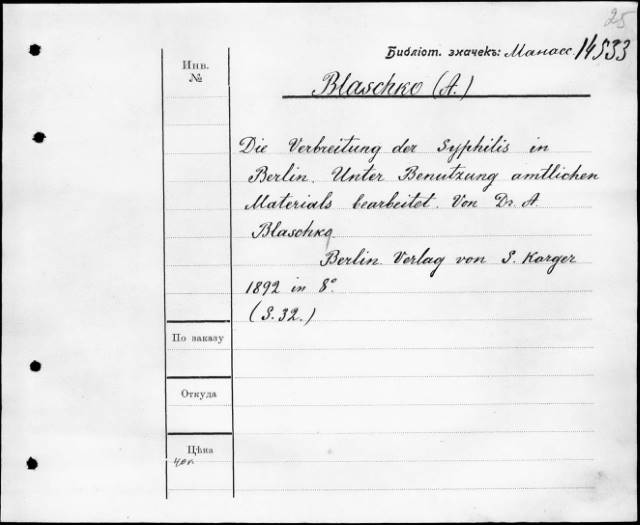 25
Библіот. значекъ: Манасс. 14533
Инв.
№
Blaschko (A.)
Die Verbreitung der Syphilis in
Berlin. Unter Benutzung amtlichen
Materials bearbeitet. Von Dr. A.
Blaschko.
Berlin. Verlag von S. Karger
1892 in 8°.
(S. 32.)
По заказу
Откуда
Цѣна
40к